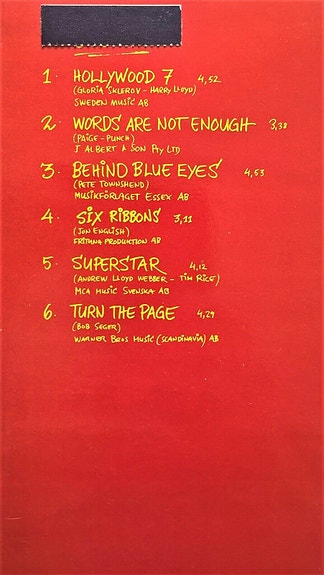 1. HOLLYWOOD 7 4,52
(GLORIA SKLEROV - HARRY LLOYD)
SWEDEN MUSIC AB
2. WORDS ARE NOT ENOUGH 3,38
(PAIGE - PUNCH)
J ALBERT & SON PTY LTD
3. BEHIND BLUE EYES 4,53
(PETE TOWNSHEND)
MUSIKFÖRLAGET ESSEX AB
4. SIX RIBBONS 3,11
(JON ENGLISH)
FRITUNA PRODUCTION AB
5. SUPERSTAR 4,12
(ANDREW LLOYD WEBBER - TIM RICE)
MCA MUSIC SVENSKA AB
6. TURN THE PAGE 4,29
(BOB SEGER)
WARNER BROS MUSIC (SCANDINAVIA) AB